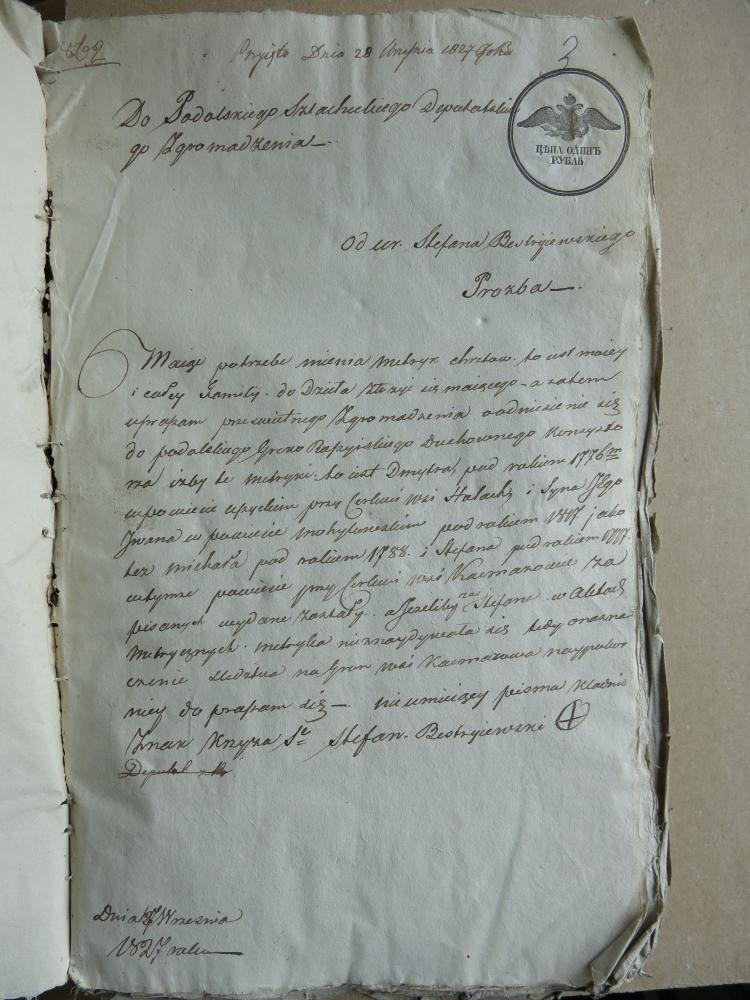 Przyięto Dnia 28 Wrzesnia 1827 Roku
3
Do Podolskiego Szlacheckiego Deputatskie
go Zgromadzenia —
ЦѢНА ОДИНЪ
РУБЛЬ
Od ur. Stefana Bestryiewskiego
Prozba —
Maiąc potrzebe mienia metryk chrztow. to iest moiey
i całey Familij. do Dzieła złożyć się maiącego - a zatem
upraszam prześwietnego Zgromadzenia o odniesienie się
do podolskiego Greko Rossyiskiego Duchownego Konsysto
rza iżby te metryki. to iest Dmytra, pod rokiem 1776m
w powiecie uszyckim przy Cerkwi wsi i Syna Jego
Jwana w powiecie mohylowskim pod rokiem 1817. jako
tez michała pod rokiem 1788. i Stefana pod rokiem
w tymze powiecie przy Cerkwi wsi Kaczmazowie za
pisanych wydane zostały. a Jezeliby Stefana w Aktach
Metrycznych. metryka nieznaydywała się tedy oznacze
czenie Sledztwa na Grun wsi Kaczmazowa naypokor
niey do praszam się —. nieumieiący pisma kładnie
Znak Krzyza Se Stefan. Bestryiewski
Deputat
Dnia 27 Wrzesnia
1827 roku